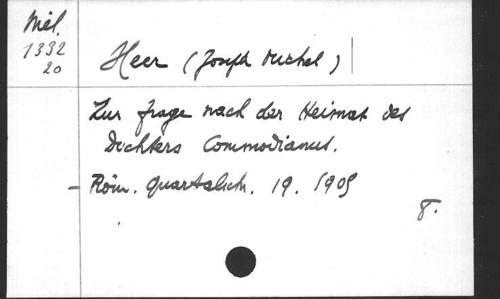 Mél.
1332
20
Heer (Joseph Michel)
Zur Frage nach der Heimat des
Dichters Commodianus.
- Röm. Quartalsch. 19. 1905
8.